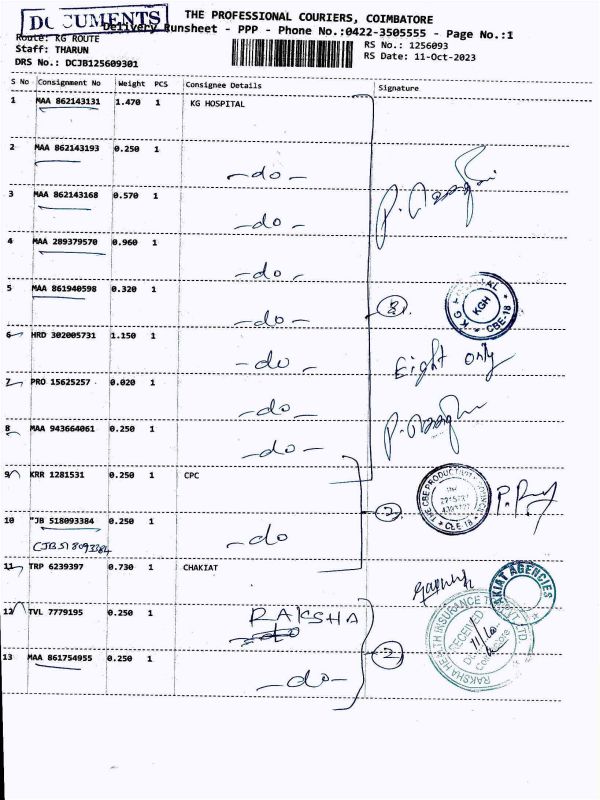 DOCUMENTS
THE PROFESSIONAL COURIERS, COIMBATORE
Delivery Runsheet - PPP - Phone No.:0422-3505555 - Page No.:1
Route: KG ROUTE
RS No.: 1256093
Staff: THARUN
RS Date: 11-Oct-2023
DRS No.: DCJB125609301
S No Consignment No Weight PCS Consignee Details Signature
1 MAA 862143131 1.470 1 KG HOSPITAL
2 MAA 862143193 0.250 1
-do-
3 MAA 862143168 0.570 1
-do-
4 MAA 289379570 0.960 1
-do-
5 MAA 861940598 0.320 1
-do-
8
KG HOSPITAL
KGH
CBE-18
6 HRD 302005731 1.150 1
-do-
Eight only
7 PRO 15625257 0.020 1
-do-
8 MAA 943664061 0.250 1
-do-
9 KRR 1281531 0.250 1 CPC
2
THE CBE PRODUCTIVITY
CBE-18
10 "JB 518093384 0.250 1
-do
CJB518093384
11 TRP 6239397 0.730 1 CHAKIAT
KIAT AGENCIES
12 TVL 7779195 0.250 1 RAKSHA
do
RAKSHA HEALTH INSURANCE PVT. LTD.
RECEIVED
11/10
Coimbatore
13 MAA 861754955 0.250 1
-do-
2